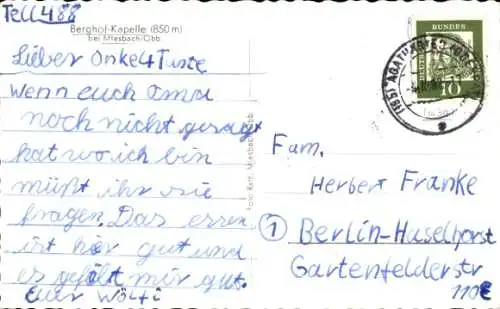 Tell 488
Berghof-Kapelle (850 m)
bei Miesbach/Obb.
Lieber Onkel + Tante
wenn euch Oma
noch nicht gesagt
hat wo ich bin
müßt ihr sie
fragen. Das essen
ist hier gut und
es gefält mir gut.
Euer Wolfi
Foto: Rett, Miesbach/Obb.
DEUTSCHE
BUNDES
10
Fam.
Herbert Franke
1 Berlin-Haselhorst
Gartenfelderstr
110E